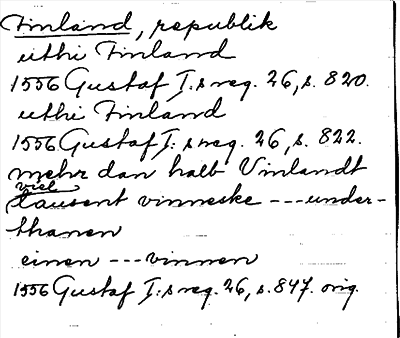 Finland, republik
uthi Finland
1556 Gustaf I:s reg. 26, s. 820.
uthi Finland
1556 Gustaf I:s reg. 26, s. 822.
mehr dan halb Vinlandt
viel
tausent vinneske --- under-
thanen
einen --- vinnen
1556 Gustaf I:s reg. 26, s. 847. orig.